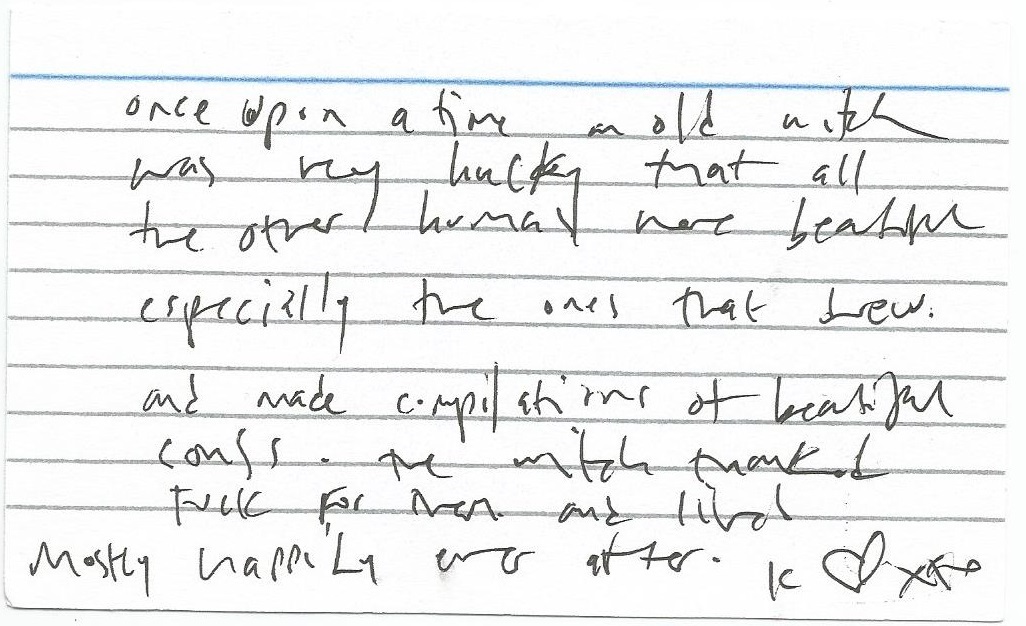 once upon a time an old witch
was very lucky that all
the other humans were beautiful
especially the ones that drew.
and made compilations of beautiful
songs. the witch thanked
fuck for them and lived
Mostly happily ever after. K ♡ xxx